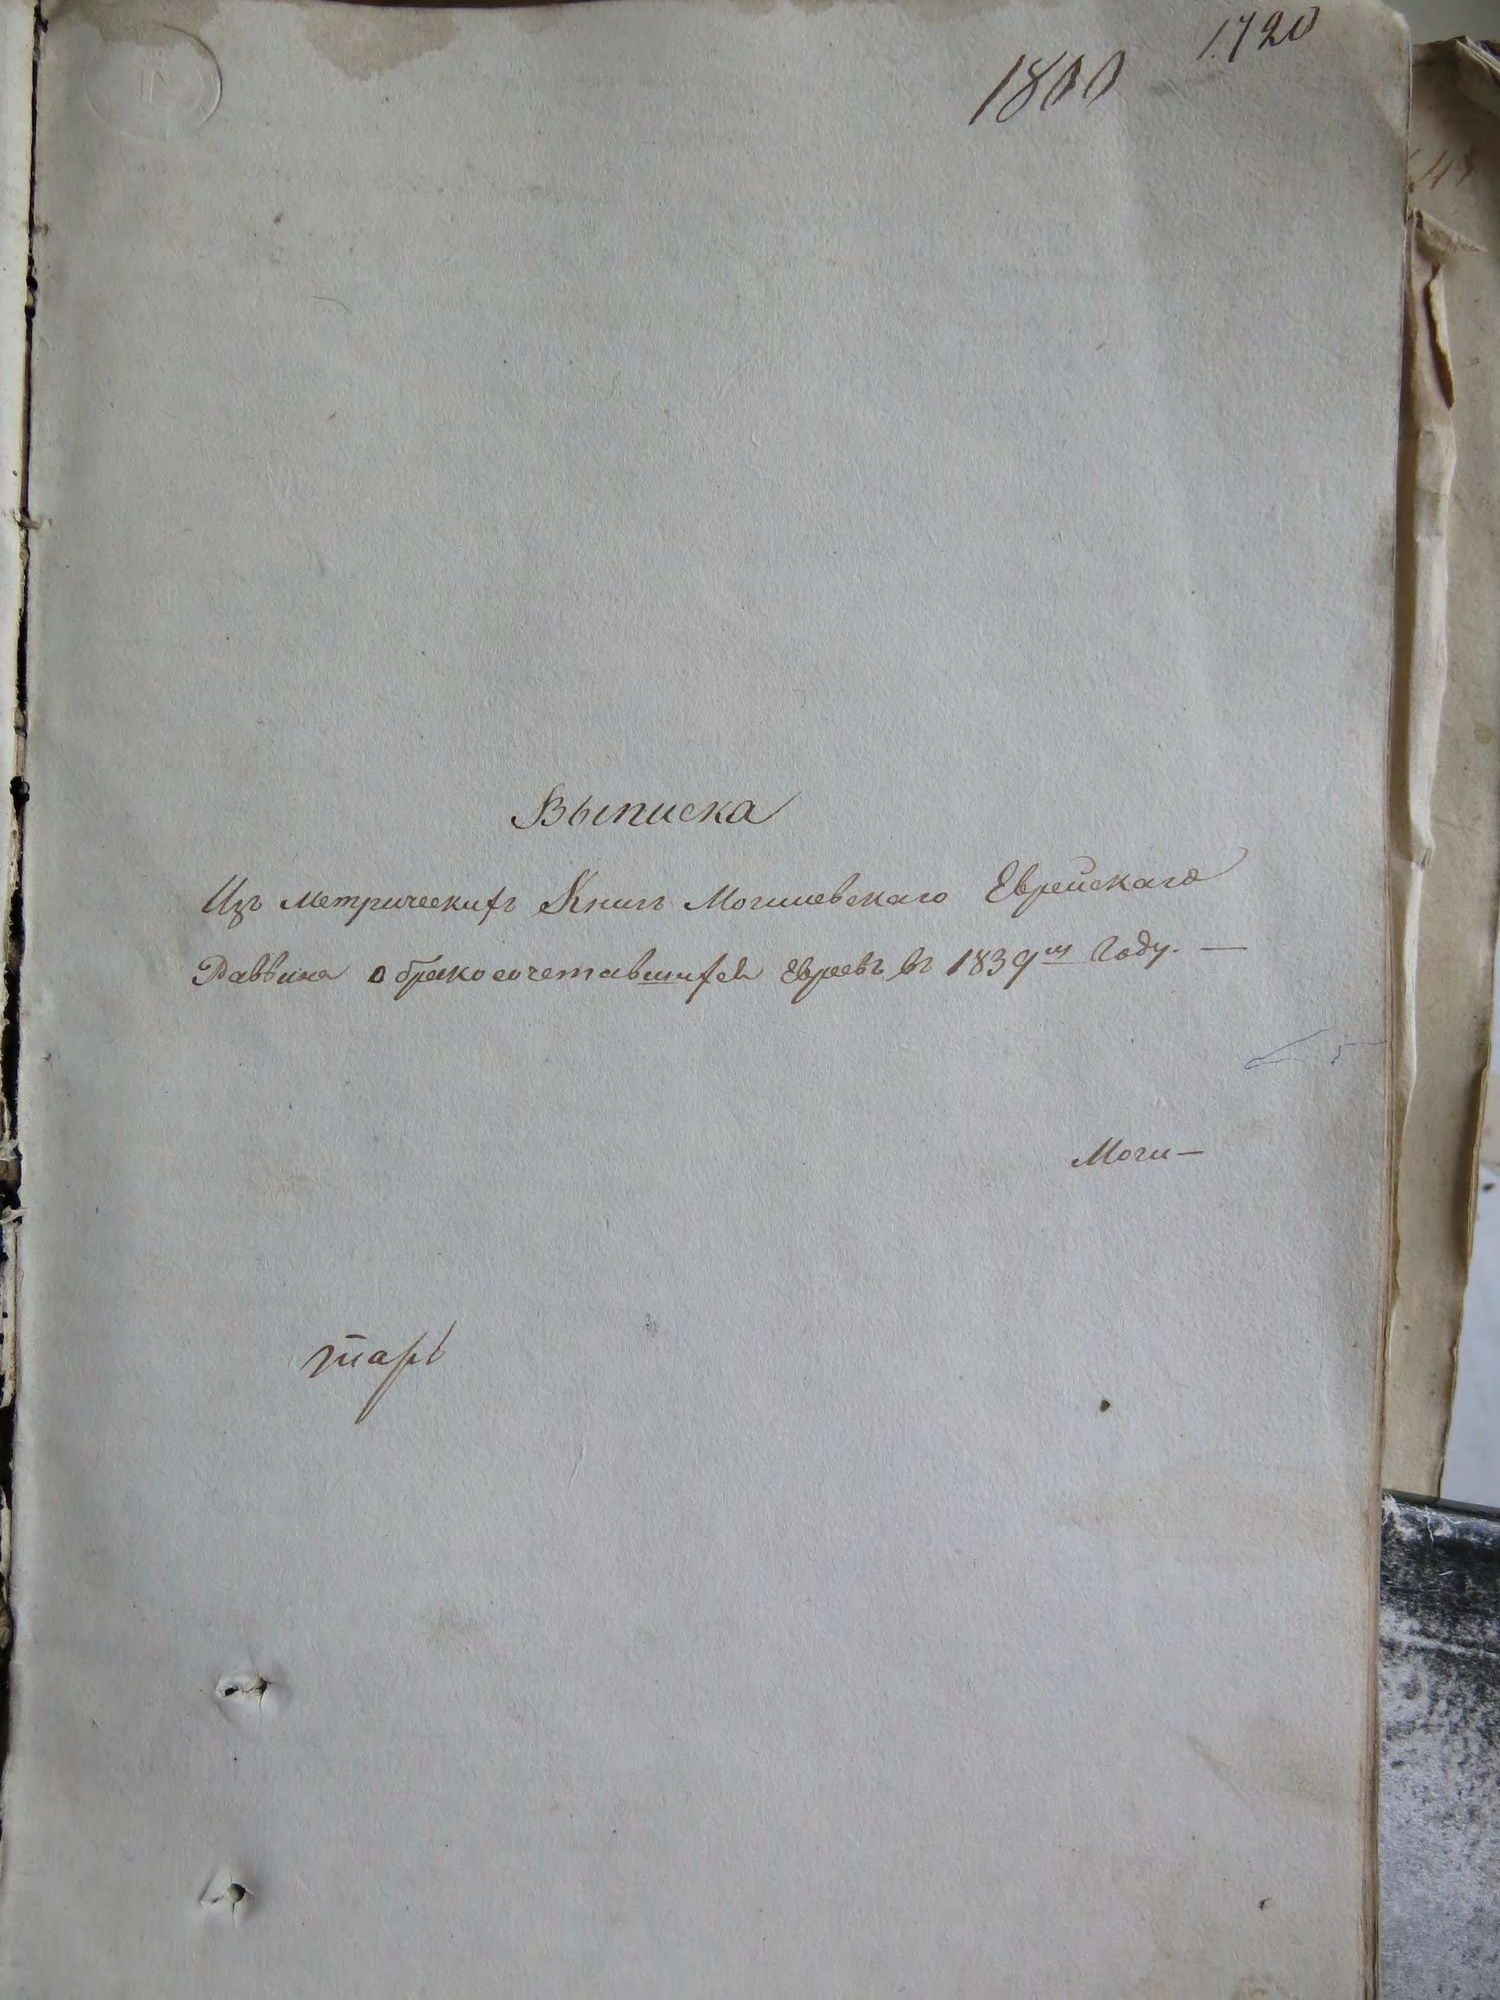 1720
1800
Выписка
Изъ метрическихъ Книгъ Могилевскаго Еврейскаго
Раввина о бракосочетавшихся Евреевъ въ 1839мъ Году. —
Моги—
тарь